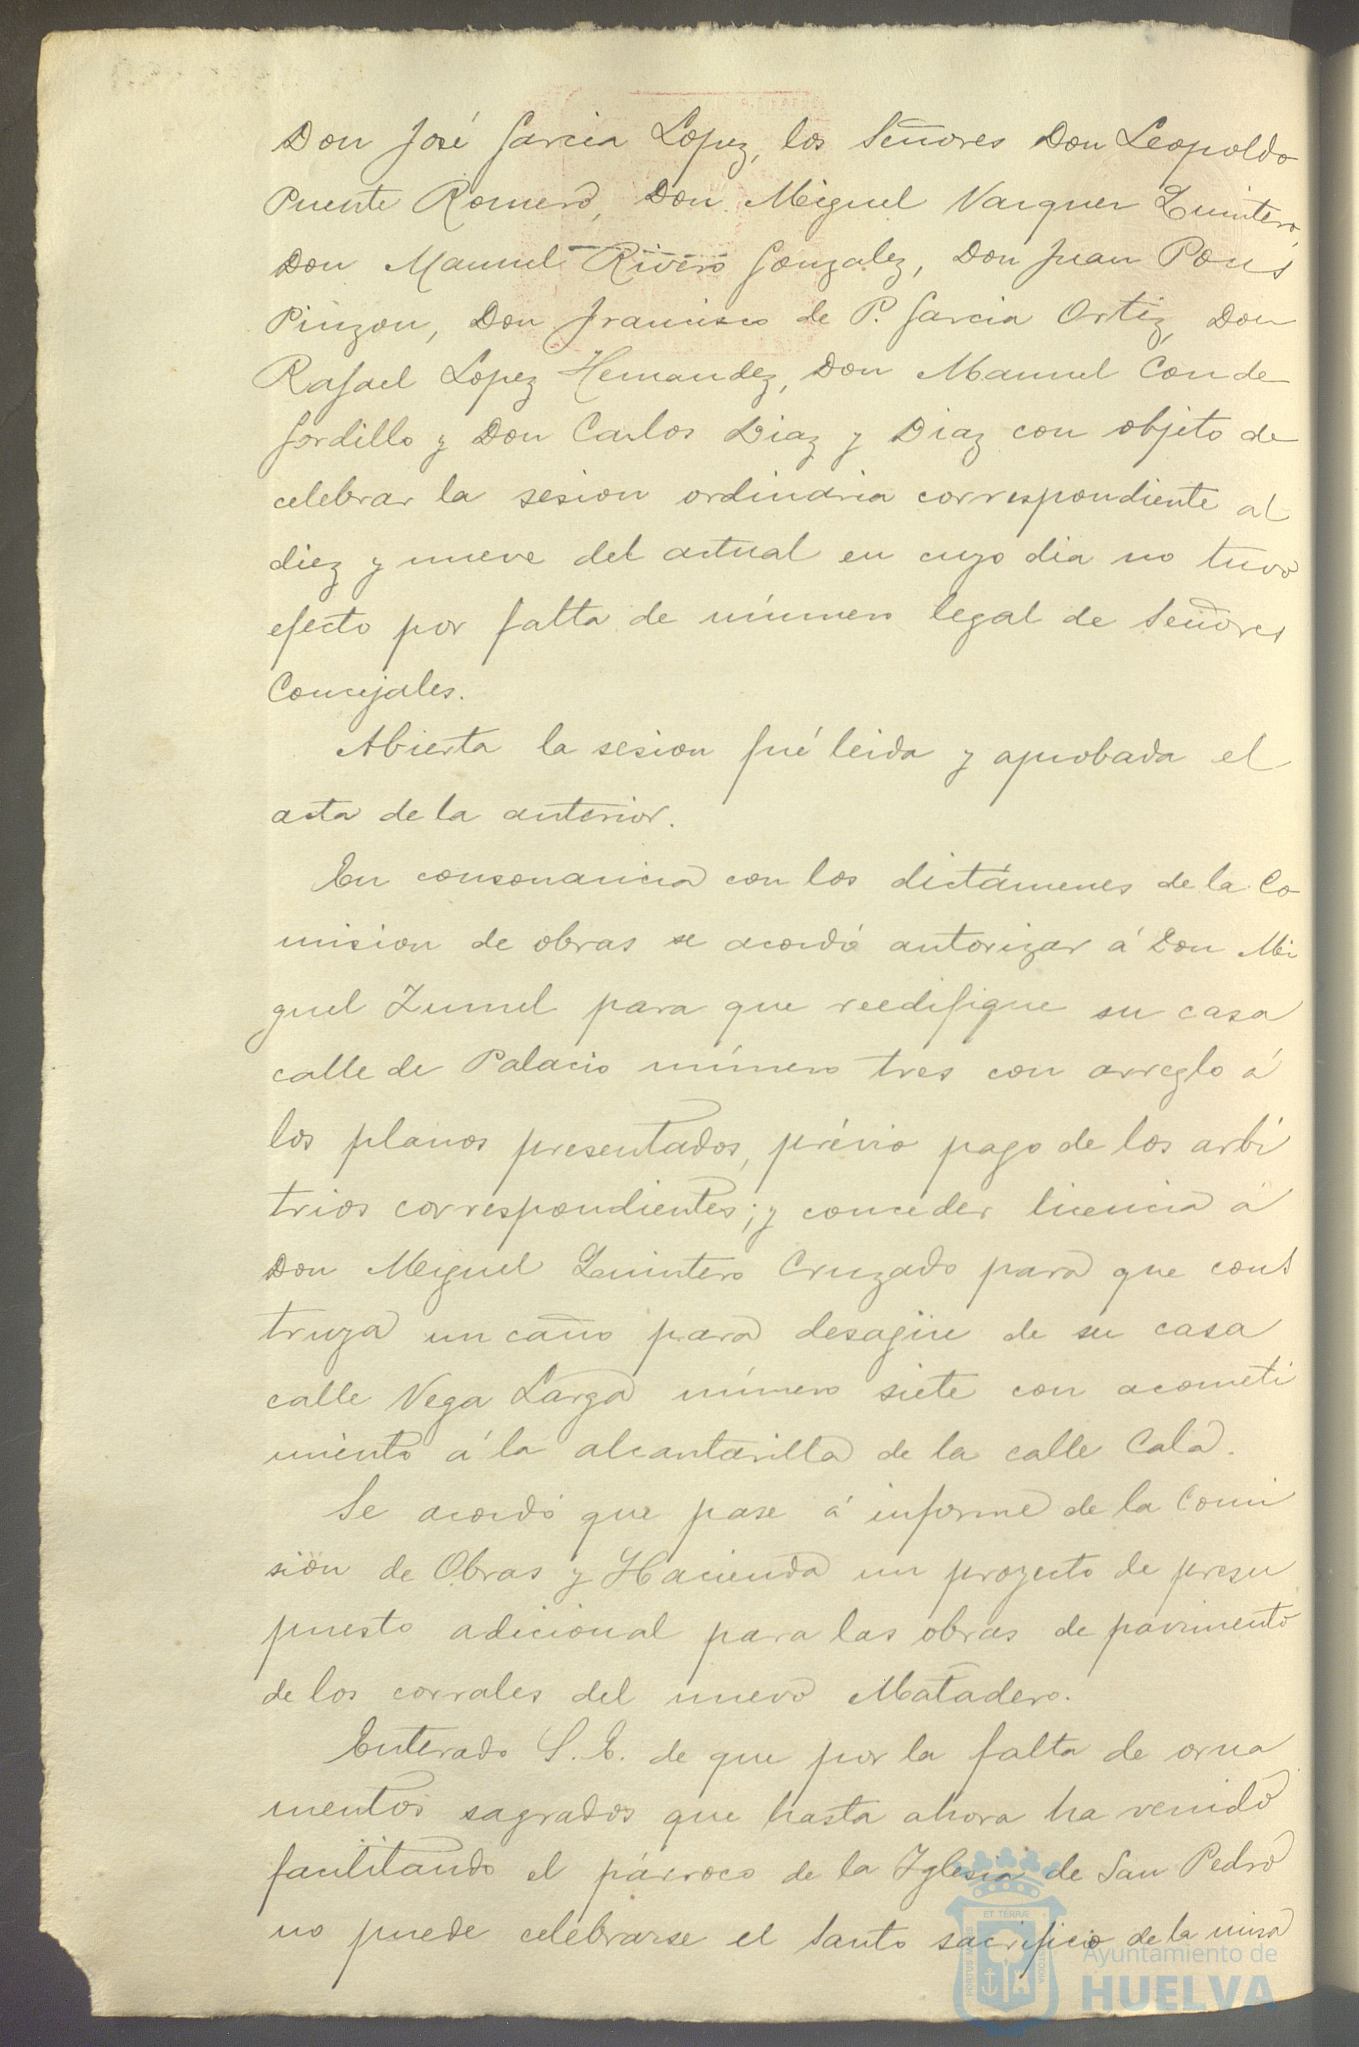 Don José Garcia Lopez, los Señores Don Leopoldo
Puente Romero, Don Miguel Vazquez Quintero,
Don Manuel Rivero Gonzalez, Don Juan Pous
Pinzon, Don Francisco de P. Garcia Ortiz, Don
Rafael Lopez Hernandez, Don Manuel Conde
Gordillo y Don Carlos Diaz y Diaz con objeto de
celebrar la sesion ordinaria correspondiente al
diez y nueve del actual en cuyo dia no tuvo
efecto por falta de número legal de Señores
Concejales.
Abierta la sesion fué leida y aprobada el
acta de la anterior.
En consonancia con los dictámenes de la Co
mision de obras se acordó autorizar á Don Mi
guel Zumel para que reedifique su casa
calle de Palacio número tres con arreglo á
los planos presentados, prévio pago de los arbi
trios correspondientes; y conceder licencia á
Don Miguel Quintero Cruzado para que cons
truya un caño para desagüe de su casa
calle Vega Larga número siete con acometi
miento á la alcantarilla de la calle Cala.
Se acordó que pase á informe de la Comi
sion de Obras y Hacienda un proyecto de presu
puesto adicional para las obras de pavimento
de los corrales del nuevo Matadero.
Enterado S. E. de que por la falta de orna
mentos sagrados que hasta ahora ha venido
facilitando el párroco de la Iglesia de San Pedro
no puede celebrarse el Santo sacrificio de la misa
Ayuntamiento de
HUELVA